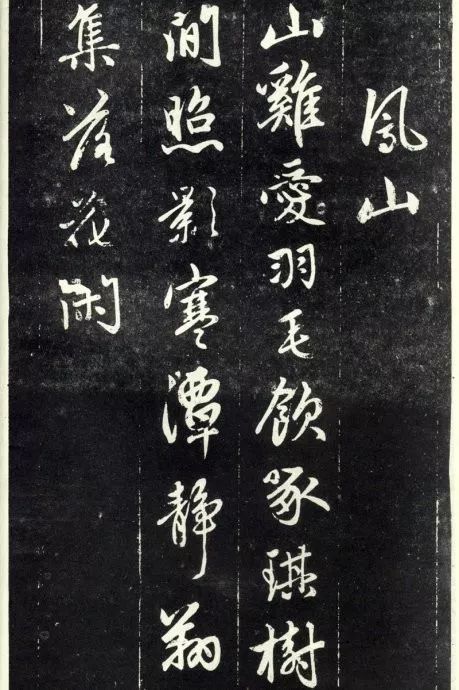 鳳山
山雞愛羽毛飲啄琪樹
間照影寒潭靜翔
集落花閑